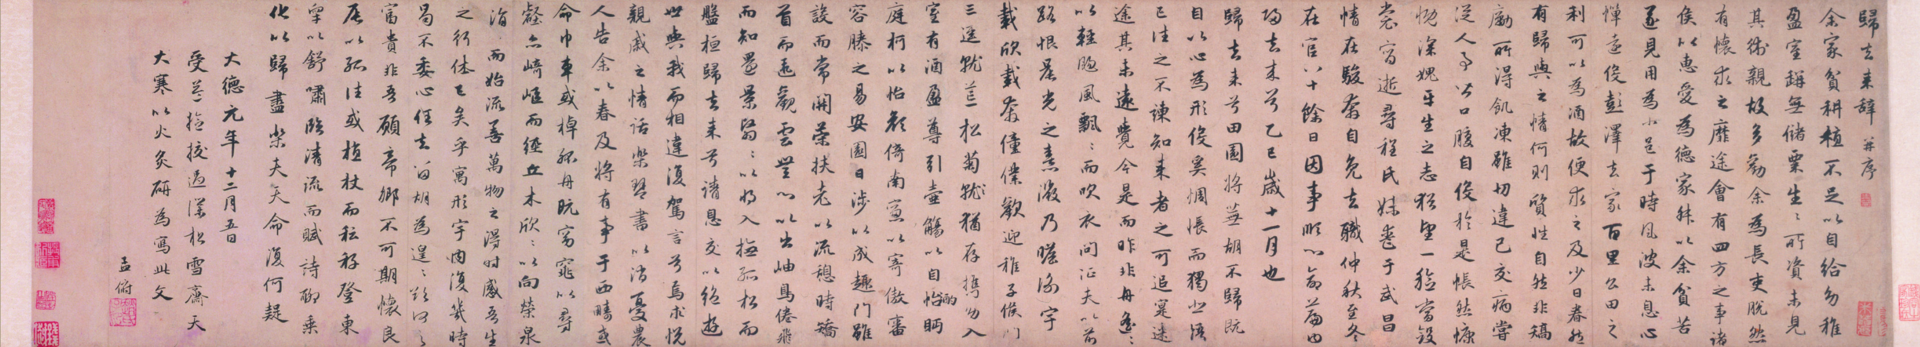 歸去來辭 并序
余家貧耕植不足以自給幼稚
盈室缾無儲粟生〻所資未見
其術親故多勸余為長吏脫然
有懷求之靡途會有四方之事諸
侯以惠愛為德家叔以余貧苦
遂見用為小邑于時風波未息心
憚遠役彭澤去家百里公田之
利可以為酒故便求之及少日眷然
有歸與之情何則質性自然非矯
勵所得飢凍雖切違己交病嘗
從人事皆口腹自役於是悵然慷
慨深媿平生之志猶望一稔當斂
裳宵逝尋程氏妹喪于武昌
情在駿奔自免去職仲秋至冬
在官八十餘日因事順心命篇曰
歸去來兮乙巳歲十一月也
歸去來兮田園將蕪胡不歸既
自以心為形役奚惆悵而獨悲悟
已往之不諫知來者之可追寔迷
途其未遠覺今是而昨非舟遙〻
以輕颺風飄〻而吹衣問征夫以前
路恨晨光之熹微乃瞻衡宇
載欣載奔僮僕歡迎稚子候門
三逕就荒松菊猶存攜幼入
室有酒盈尊引壺觴以自酌怡眄
庭柯以怡顏倚南窗以寄傲審
容膝之易安園日涉以成趣門雖
設而常關策扶老以流憩時矯
首而遐觀雲無心以出岫鳥倦飛
而知還景翳〻以將入撫孤松而
盤桓歸去來兮請息交以絕遊
世與我而相違復駕言兮焉求悅
親戚之情話樂琴書以消憂農
人告余以春及將有事于西疇或
命巾車或棹孤舟既窈窕以尋
壑亦崎嶇而經丘木欣〻以向榮泉
涓〻而始流善萬物之得時感吾生
之行休已矣乎寓形宇內復幾時
曷不委心任去留胡為遑〻欲何之
富貴非吾願帝鄉不可期懷良
辰以孤往或植杖而耘耔登東
皋以舒嘯臨清流而賦詩聊乘
化以歸盡樂夫天命復何疑
大德元年十二月五日
受益撿挍過深松雪齋天
大寒以火炙硯為寫此文
孟俯